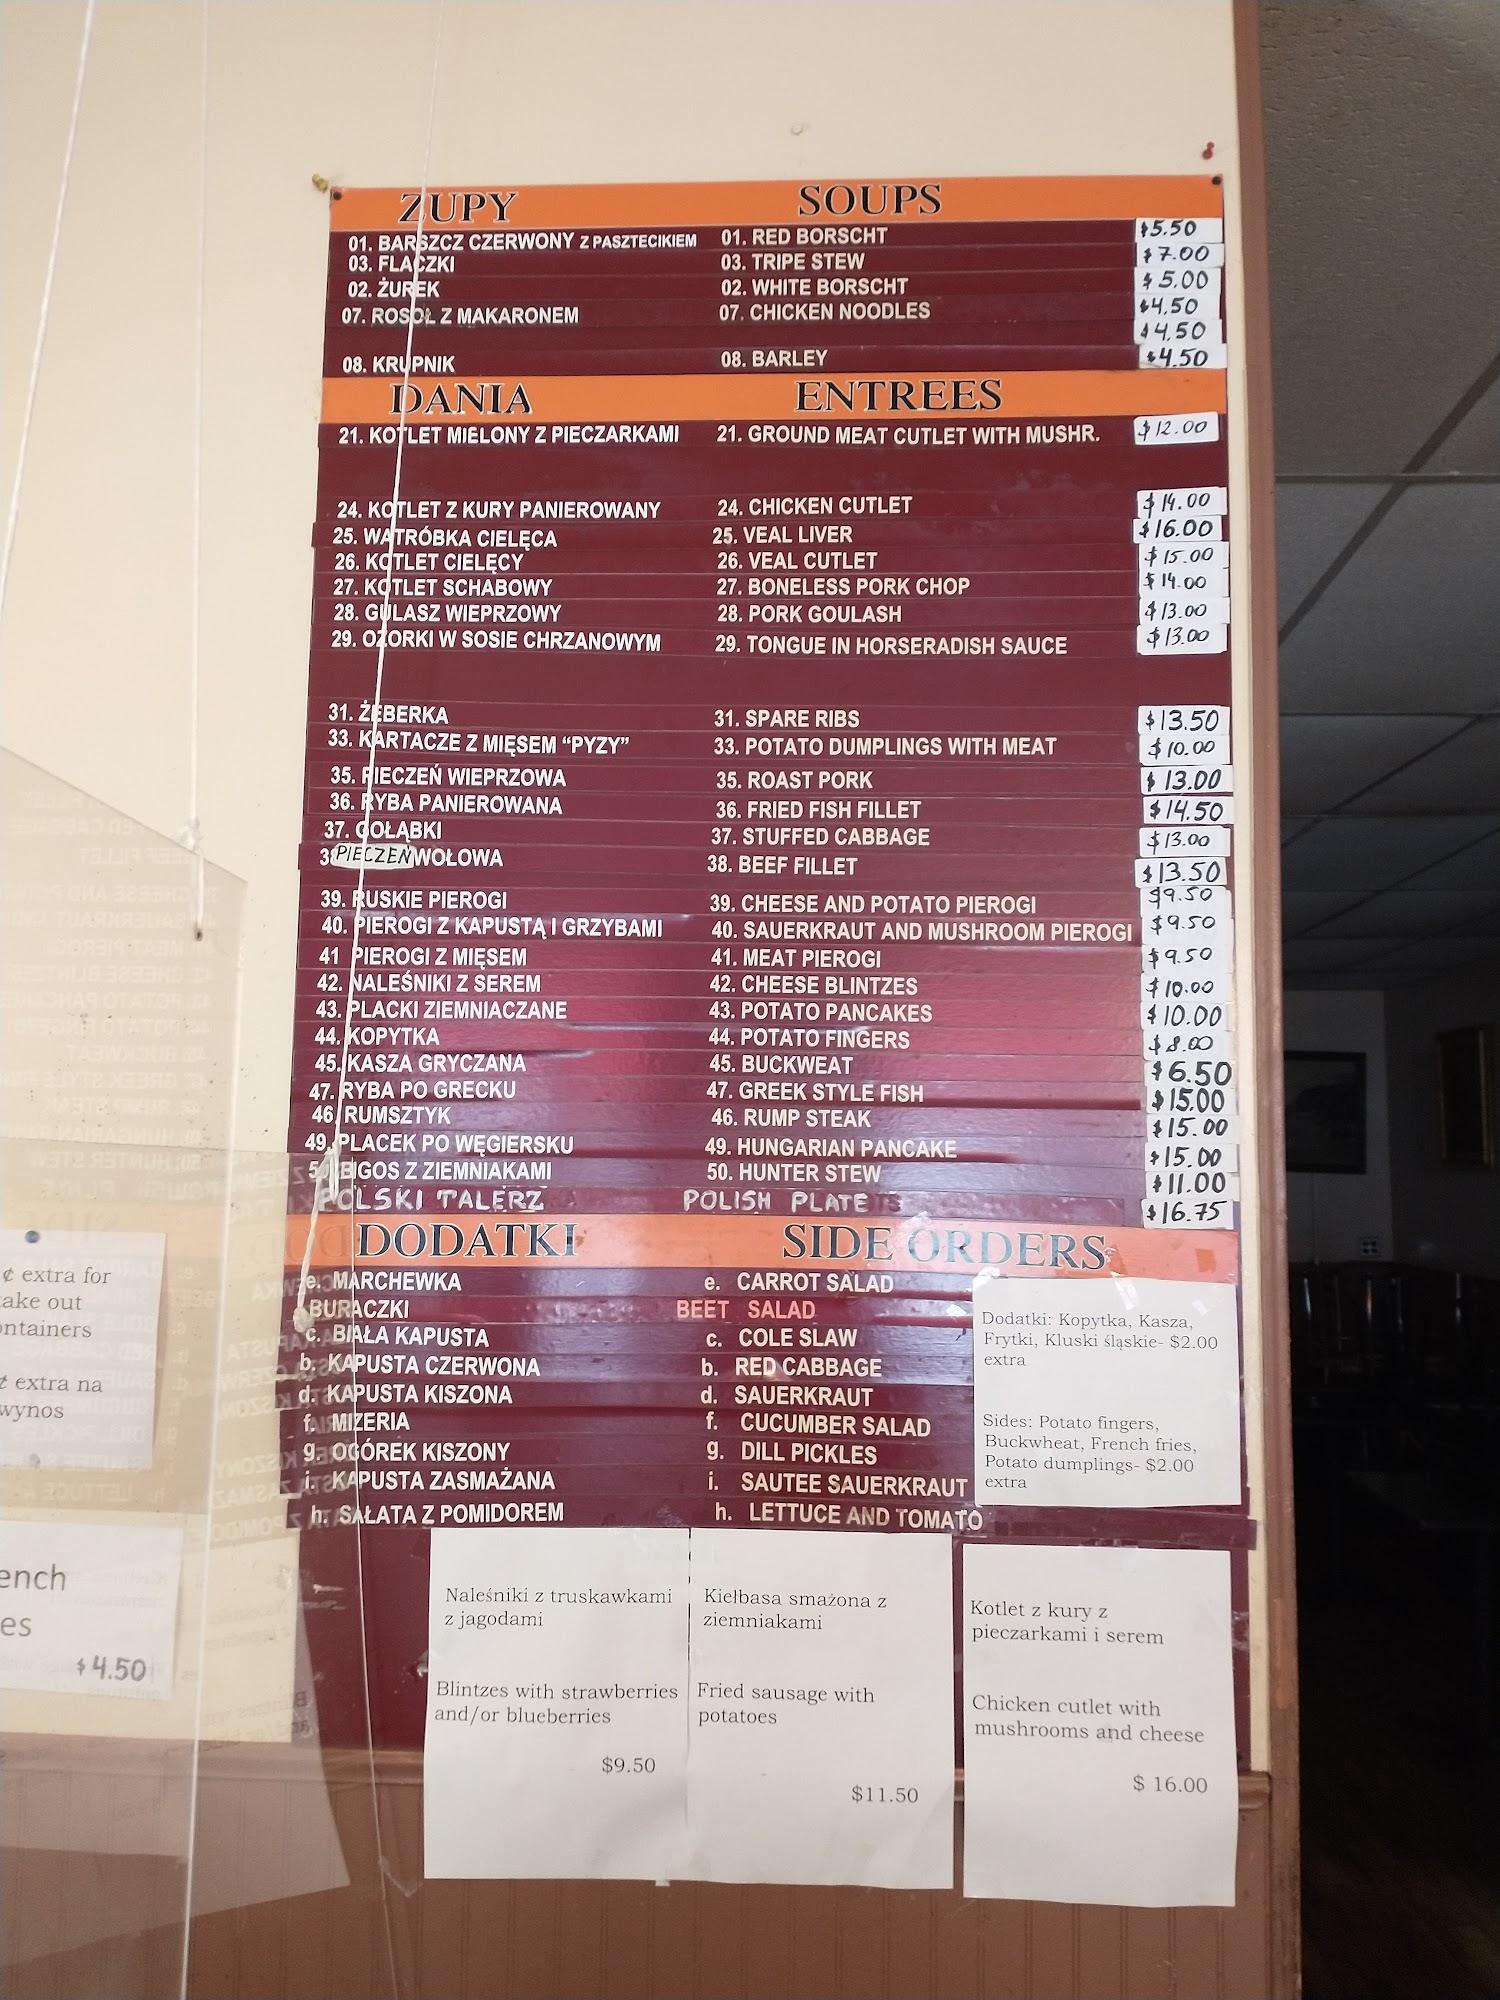 ZUPY SOUPS
01. BARSZCZ CZERWONY Z PASZTECIKIEM 01. RED BORSCHT $5.50
03. FLACZKI 03. TRIPE STEW $7.00
02. ŻUREK 02. WHITE BORSCHT $5.00
07. ROSOŁ Z MAKARONEM 07. CHICKEN NOODLES $4.50
$4.50
08. KRUPNIK 08. BARLEY $4.50
DANIA ENTREES
21. KOTLET MIELONY Z PIECZARKAMI 21. GROUND MEAT CUTLET WITH MUSHR. $12.00
24. KOTLET Z KURY PANIEROWANY 24. CHICKEN CUTLET $14.00
25. WATRÓBKA CIELĘCA 25. VEAL LIVER $16.00
26. KOTLET CIELĘCY 26. VEAL CUTLET $15.00
27. KOTLET SCHABOWY 27. BONELESS PORK CHOP $14.00
28. GULASZ WIEPRZOWY 28. PORK GOULASH $13.00
29. OZORKI W SOSIE CHRZANOWYM 29. TONGUE IN HORSERADISH SAUCE $13.00
31. ŻEBERKA 31. SPARE RIBS $13.50
33. KARTACZE Z MIĘSEM "PYZY" 33. POTATO DUMPLINGS WITH MEAT $10.00
35. PIECZEŃ WIEPRZOWA 35. ROAST PORK $13.00
36. RYBA PANIEROWANA 36. FRIED FISH FILLET $14.50
37. GOŁĄBKI 37. STUFFED CABBAGE $13.00
3 PIECZEŃ WOŁOWA 38. BEEF FILLET $13.50
39. RUSKIE PIEROGI 39. CHEESE AND POTATO PIEROGI $9.50
40. PIEROGI Z KAPUSTĄ I GRZYBAMI 40. SAUERKRAUT AND MUSHROOM PIEROGI $9.50
41 PIEROGI Z MIĘSEM 41. MEAT PIEROGI $9.50
42. NALEŚNIKI Z SEREM 42. CHEESE BLINTZES $10.00
43. PLACKI ZIEMNIACZANE 43. POTATO PANCAKES $10.00
44. KOPYTKA 44. POTATO FINGERS $8.00
45. KASZA GRYCZANA 45. BUCKWEAT $6.50
47. RYBA PO GRECKU 47. GREEK STYLE FISH $15.00
46. RUMSZTYK 46. RUMP STEAK $15.00
49. PLACEK PO WĘGIERSKU 49. HUNGARIAN PANCAKE $15.00
50. BIGOS Z ZIEMNIAKAMI 50. HUNTER STEW $11.00
POLSKI TALERZ POLISH PLATE $16.75
DODATKI SIDE ORDERS
e. MARCHEWKA e. CARROT SALAD
BURACZKI BEET SALAD
c. BIAŁA KAPUSTA c. COLE SLAW
b. KAPUSTA CZERWONA b. RED CABBAGE
d. KAPUSTA KISZONA d. SAUERKRAUT
f. MIZERIA f. CUCUMBER SALAD
g. OGÓREK KISZONY g. DILL PICKLES
i. KAPUSTA ZASMAŻANA i. SAUTEE SAUERKRAUT
h. SAŁATA Z POMIDOREM h. LETTUCE AND TOMATO
Dodatki: Kopytka, Kasza,
Frytki, Kluski śląskie- $2.00
extra
Sides: Potato fingers,
Buckwheat, French fries,
Potato dumplings- $2.00
extra
¢ extra for
take out
ontainers
¢ extra na
wynos
ench
es
$4.50
Naleśniki z truskawkami
z jagodami
Blintzes with strawberries
and/or blueberries
$9.50
Kiełbasa smażona z
ziemniakami
Fried sausage with
potatoes
$11.50
Kotlet z kury z
pieczarkami i serem
Chicken cutlet with
mushrooms and cheese
$ 16.00